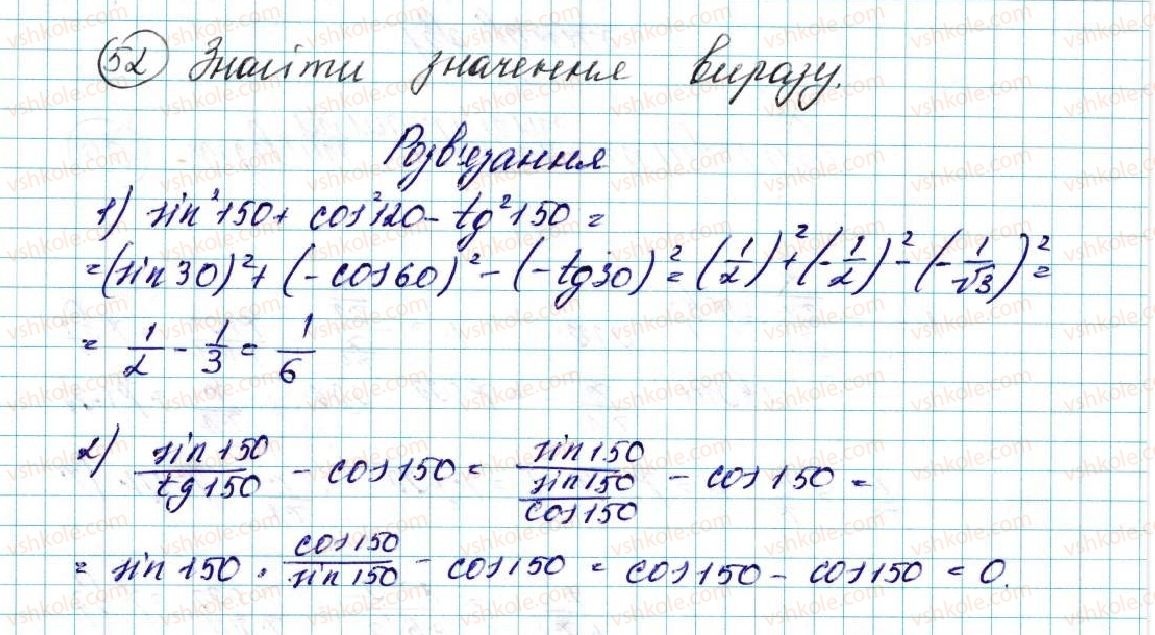 52 Знайти значення виразу.
Розв'язання
1) sin²150 + cos²120 - tg²150 =
= (sin 30)² + (-cos 60)² - (-tg 30)² = (1/2)² + (-1/2)² - (-1/√3)² =
= 1/2 - 1/3 = 1/6
2) sin 150 / tg 150 - cos 150 = sin 150 / (sin 150 / cos 150) - cos 150 =
= sin 150 · cos 150 / sin 150 - cos 150 = cos 150 - cos 150 = 0.
vshkole.com